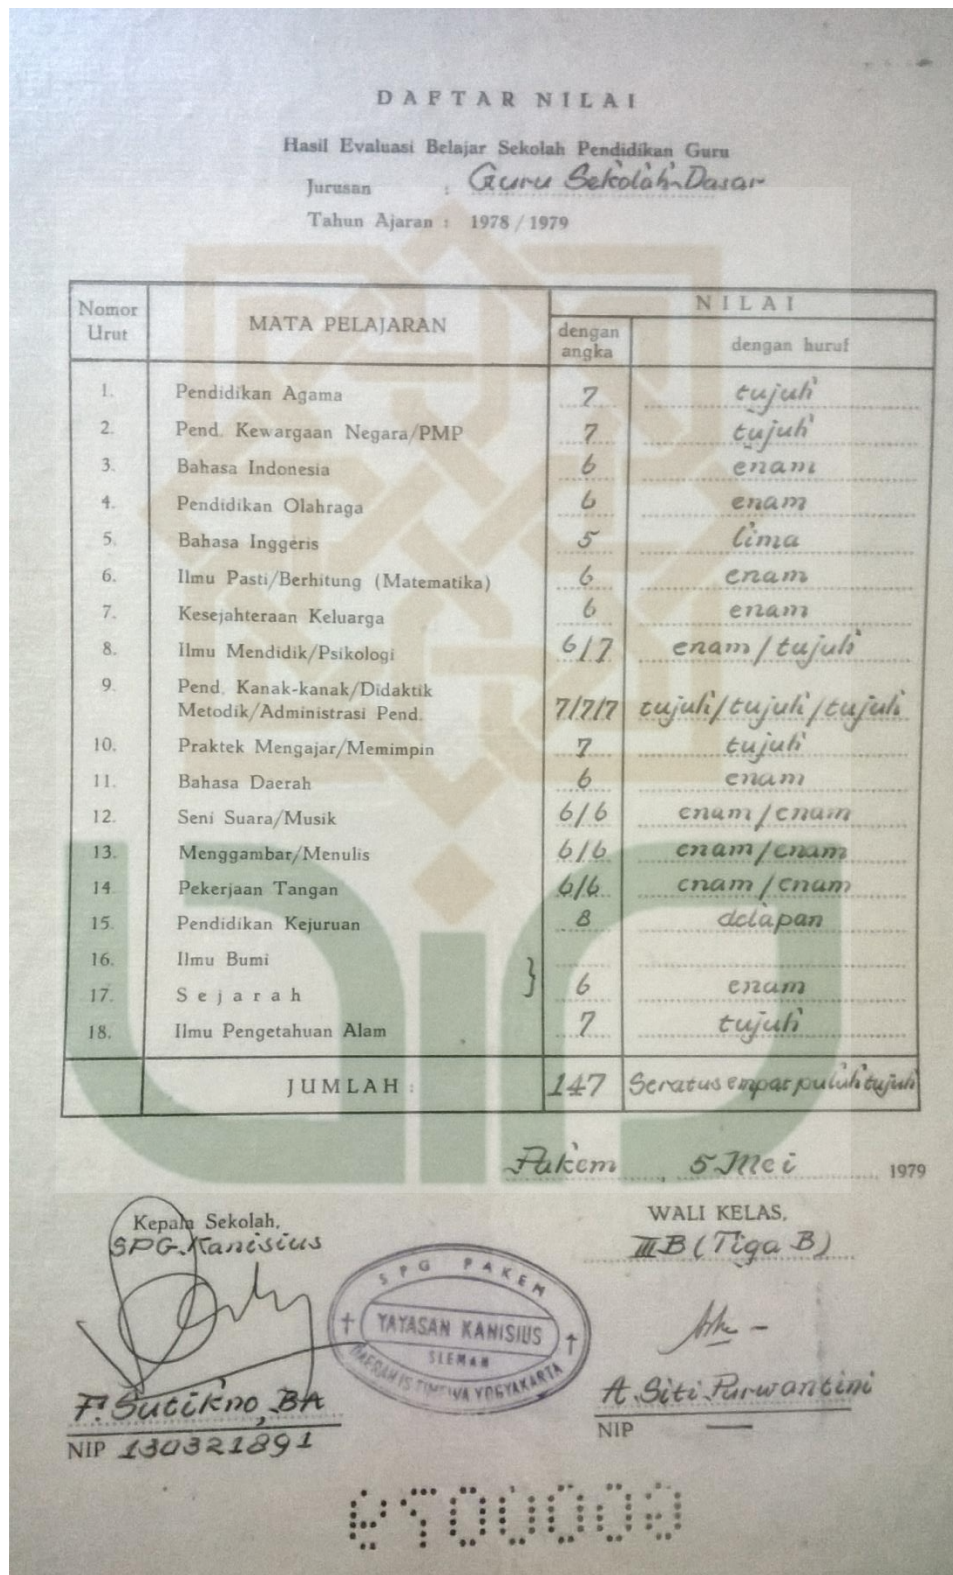 DAFTAR NILAI
Hasil Evaluasi Belajar Sekolah Pendidikan Guru
Jurusan : Guru Sekolah Dasar
Tahun Ajaran : 1978 / 1979
Nomor Urut MATA PELAJARAN NILAI
dengan angka dengan huruf
1. Pendidikan Agama 7 tujuh
2. Pend. Kewargaan Negara/PMP 7 tujuh
3. Bahasa Indonesia 6 enam
4. Pendidikan Olahraga 6 enam
5. Bahasa Inggeris 5 lima
6. Ilmu Pasti/Berhitung (Matematika) 6 enam
7. Kesejahteraan Keluarga 6 enam
8. Ilmu Mendidik/Psikologi 6/7 enam/tujuh
9. Pend. Kanak-kanak/Didaktik
Metodik/Administrasi Pend. 7/7/7 tujuh/tujuh/tujuh
10. Praktek Mengajar/Memimpin 7 tujuh
11. Bahasa Daerah 6 enam
12. Seni Suara/Musik 6/6 enam/enam
13. Menggambar/Menulis 6/6 enam/enam
14. Pekerjaan Tangan 6/6 enam/enam
15. Pendidikan Kejuruan 8 delapan
16. Ilmu Bumi
17. Sejarah } 6 enam
18. Ilmu Pengetahuan Alam 7 tujuh
JUMLAH : 147 Seratus empat puluh tujuh
Pakem, 5 Mei 1979
Kepala Sekolah, WALI KELAS,
SPG. Kanisius III B (Tiga B)
SPG PAKEM
YAYASAN KANISIUS
SLEMAN
DAERAH ISTIMEWA YOGYAKARTA
F. Sutikno, BA A. Siti Purwantini
NIP 130321891 NIP —